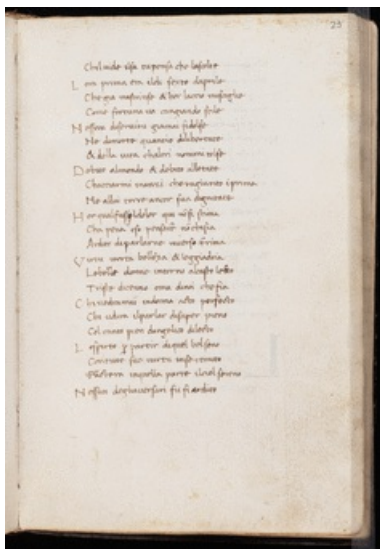 Chil vide ilsa tu pensa che lascolte
L ora prima era eldi sexto daprile
Che gia mistrinse & hor lasso misciolse
Come fortuna va cangiando stile
N essun diservitu giamai sidolse
Ne dimorte quantio dilibertate
& della vita chaltri non mi tolse
D ebito almondo & debito alletate
Cacciarmi inanzi che ero giunto i prima
Ne allui torre ancor sua dignitate
H or qual fussi ldolor qui nosi stima
Cha pena oso pensarne nochesia
Ardito diparlarne inverso o rima
V irtu morta bellezza & leggiadria
Le belle donne intorno al casto lecto
Triste diceano omai dinoi che fia
C hi vedra mai indonna acto perfecto
Chi udira ilparlar disaper pieno
El canto pien dangelico dilecto
L o spirto p partir di quel bel seno
Con tutte sue virtu inse romito
Facto era inquella parte ilciel sereno
N essun degliaversari fu si ardito